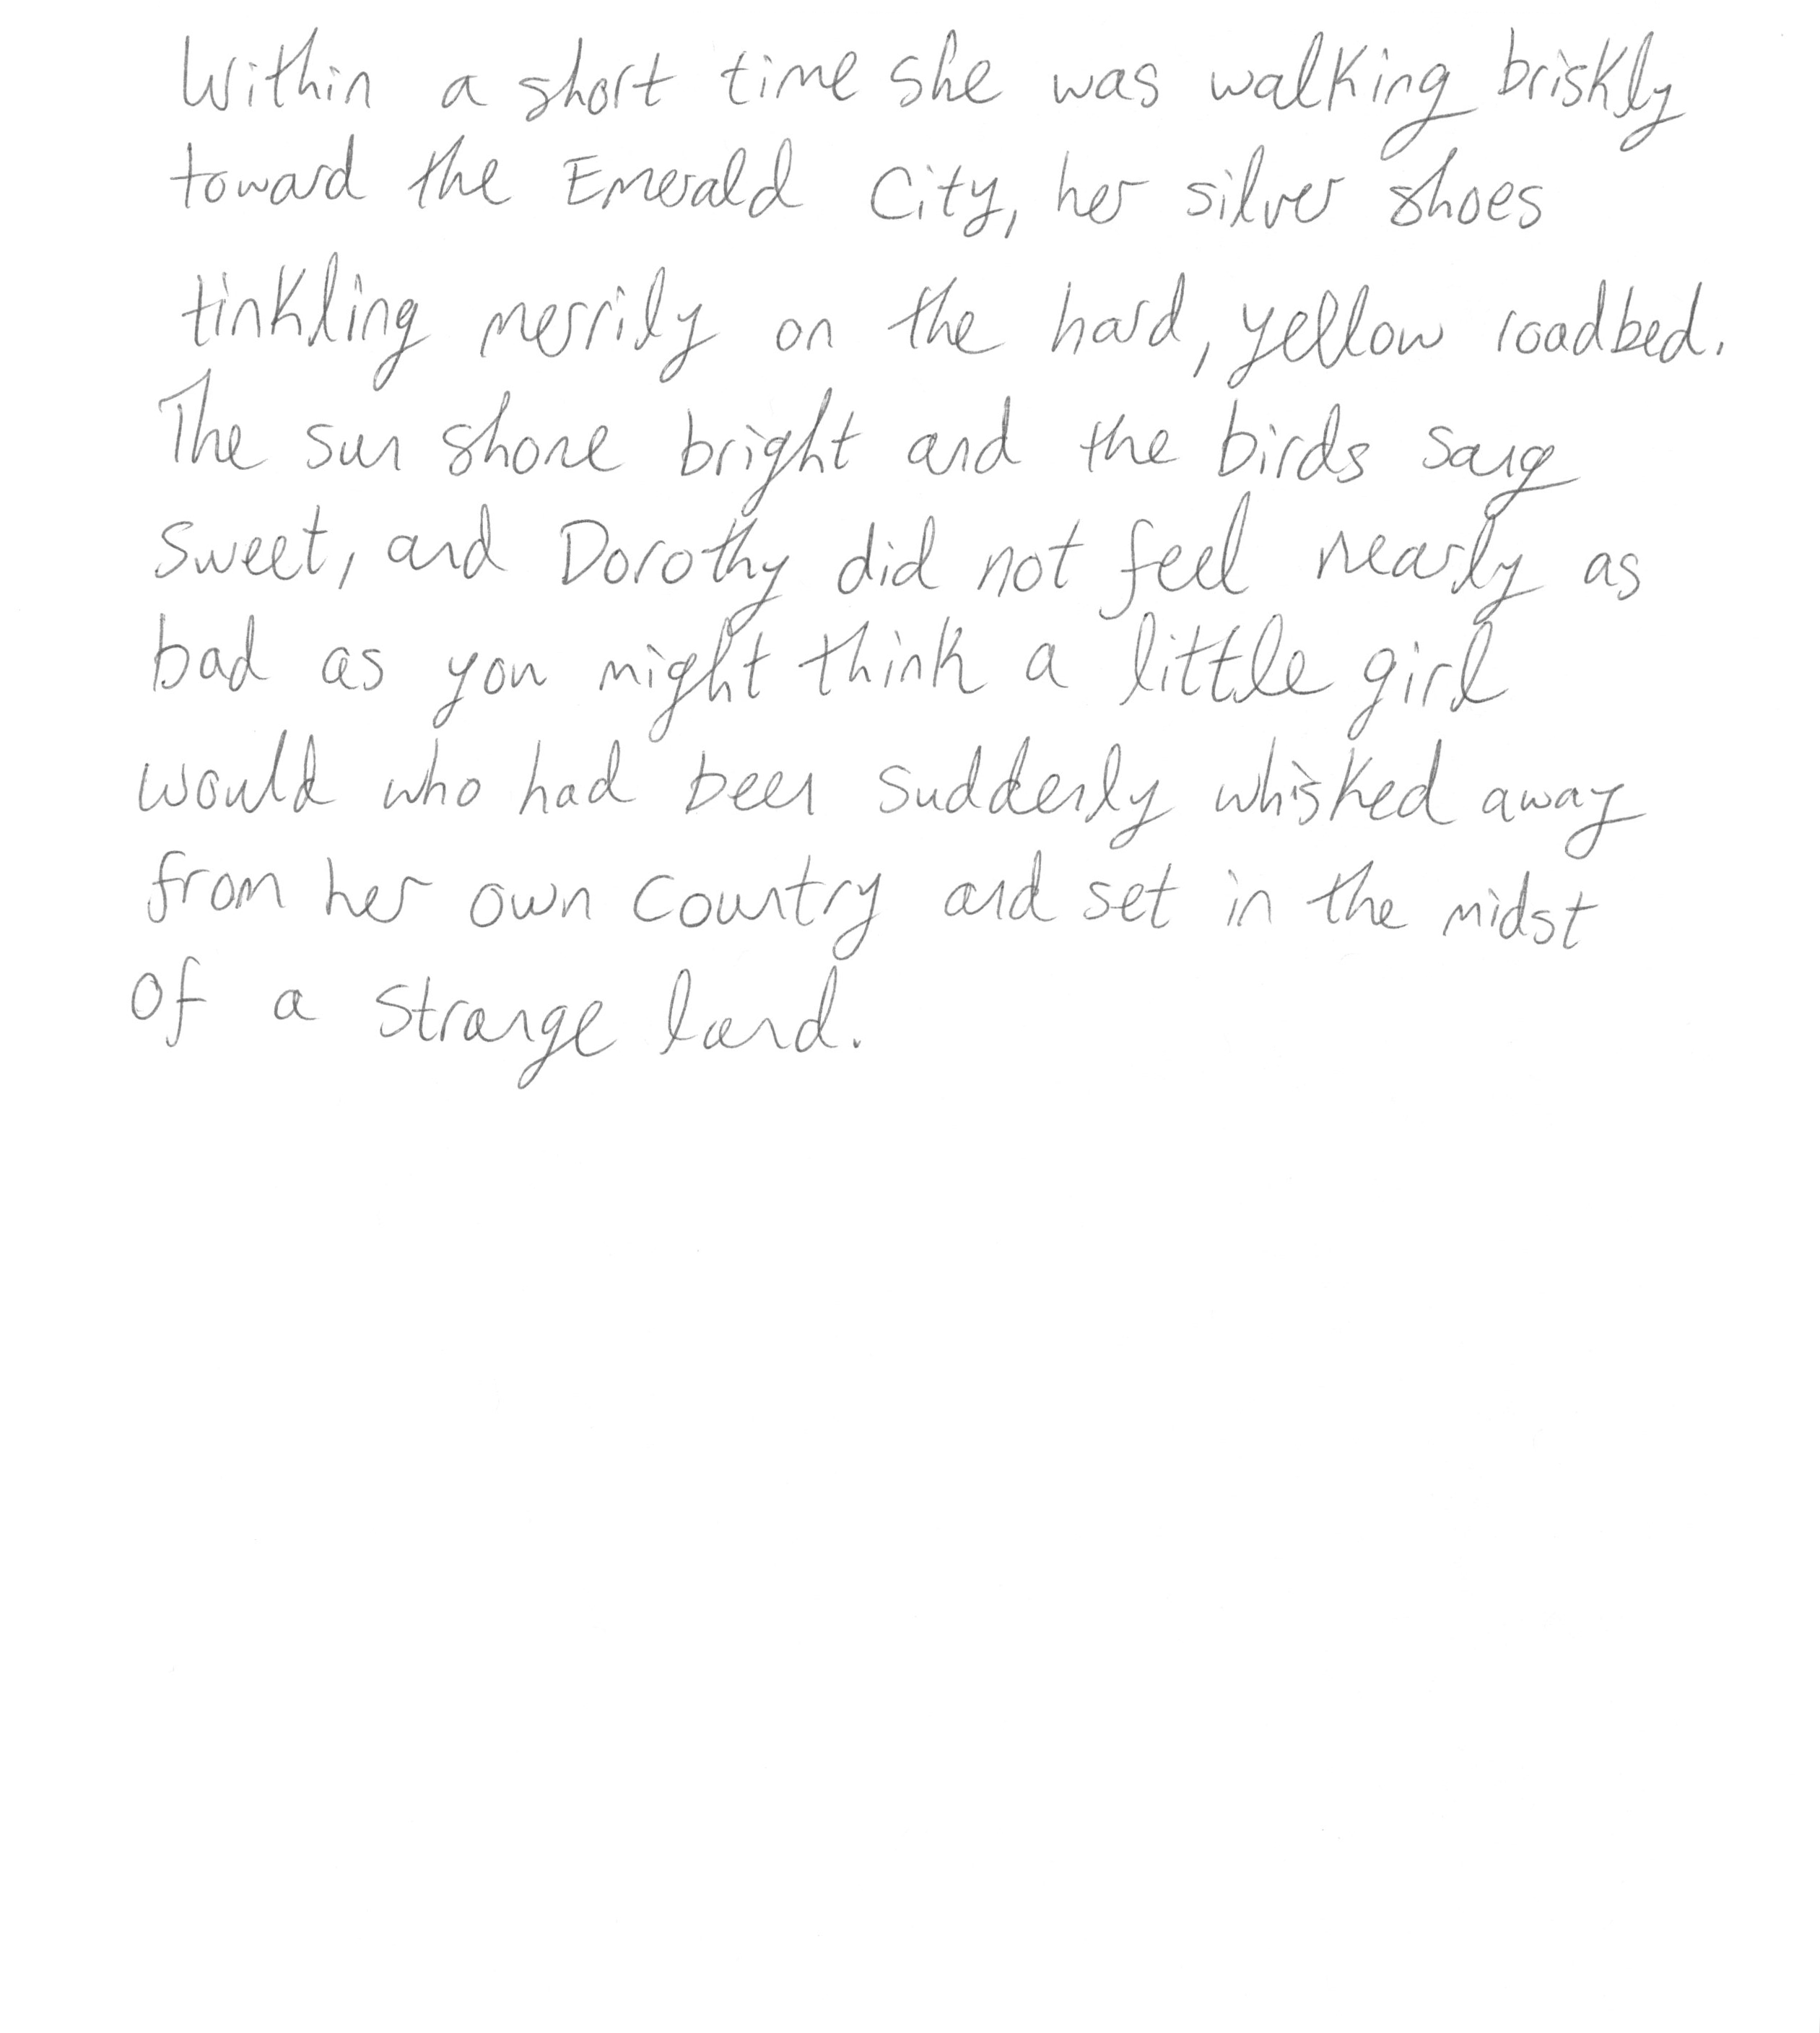 Within a short time she was walking briskly
toward the Emerald City, her silver shoes
tinkling merrily on the hard, yellow roadbed.
The sun shone bright and the birds sang
sweet, and Dorothy did not feel nearly as
bad as you might think a little girl
would who had been suddenly whisked away
from her own country and set in the midst
of a strange land.